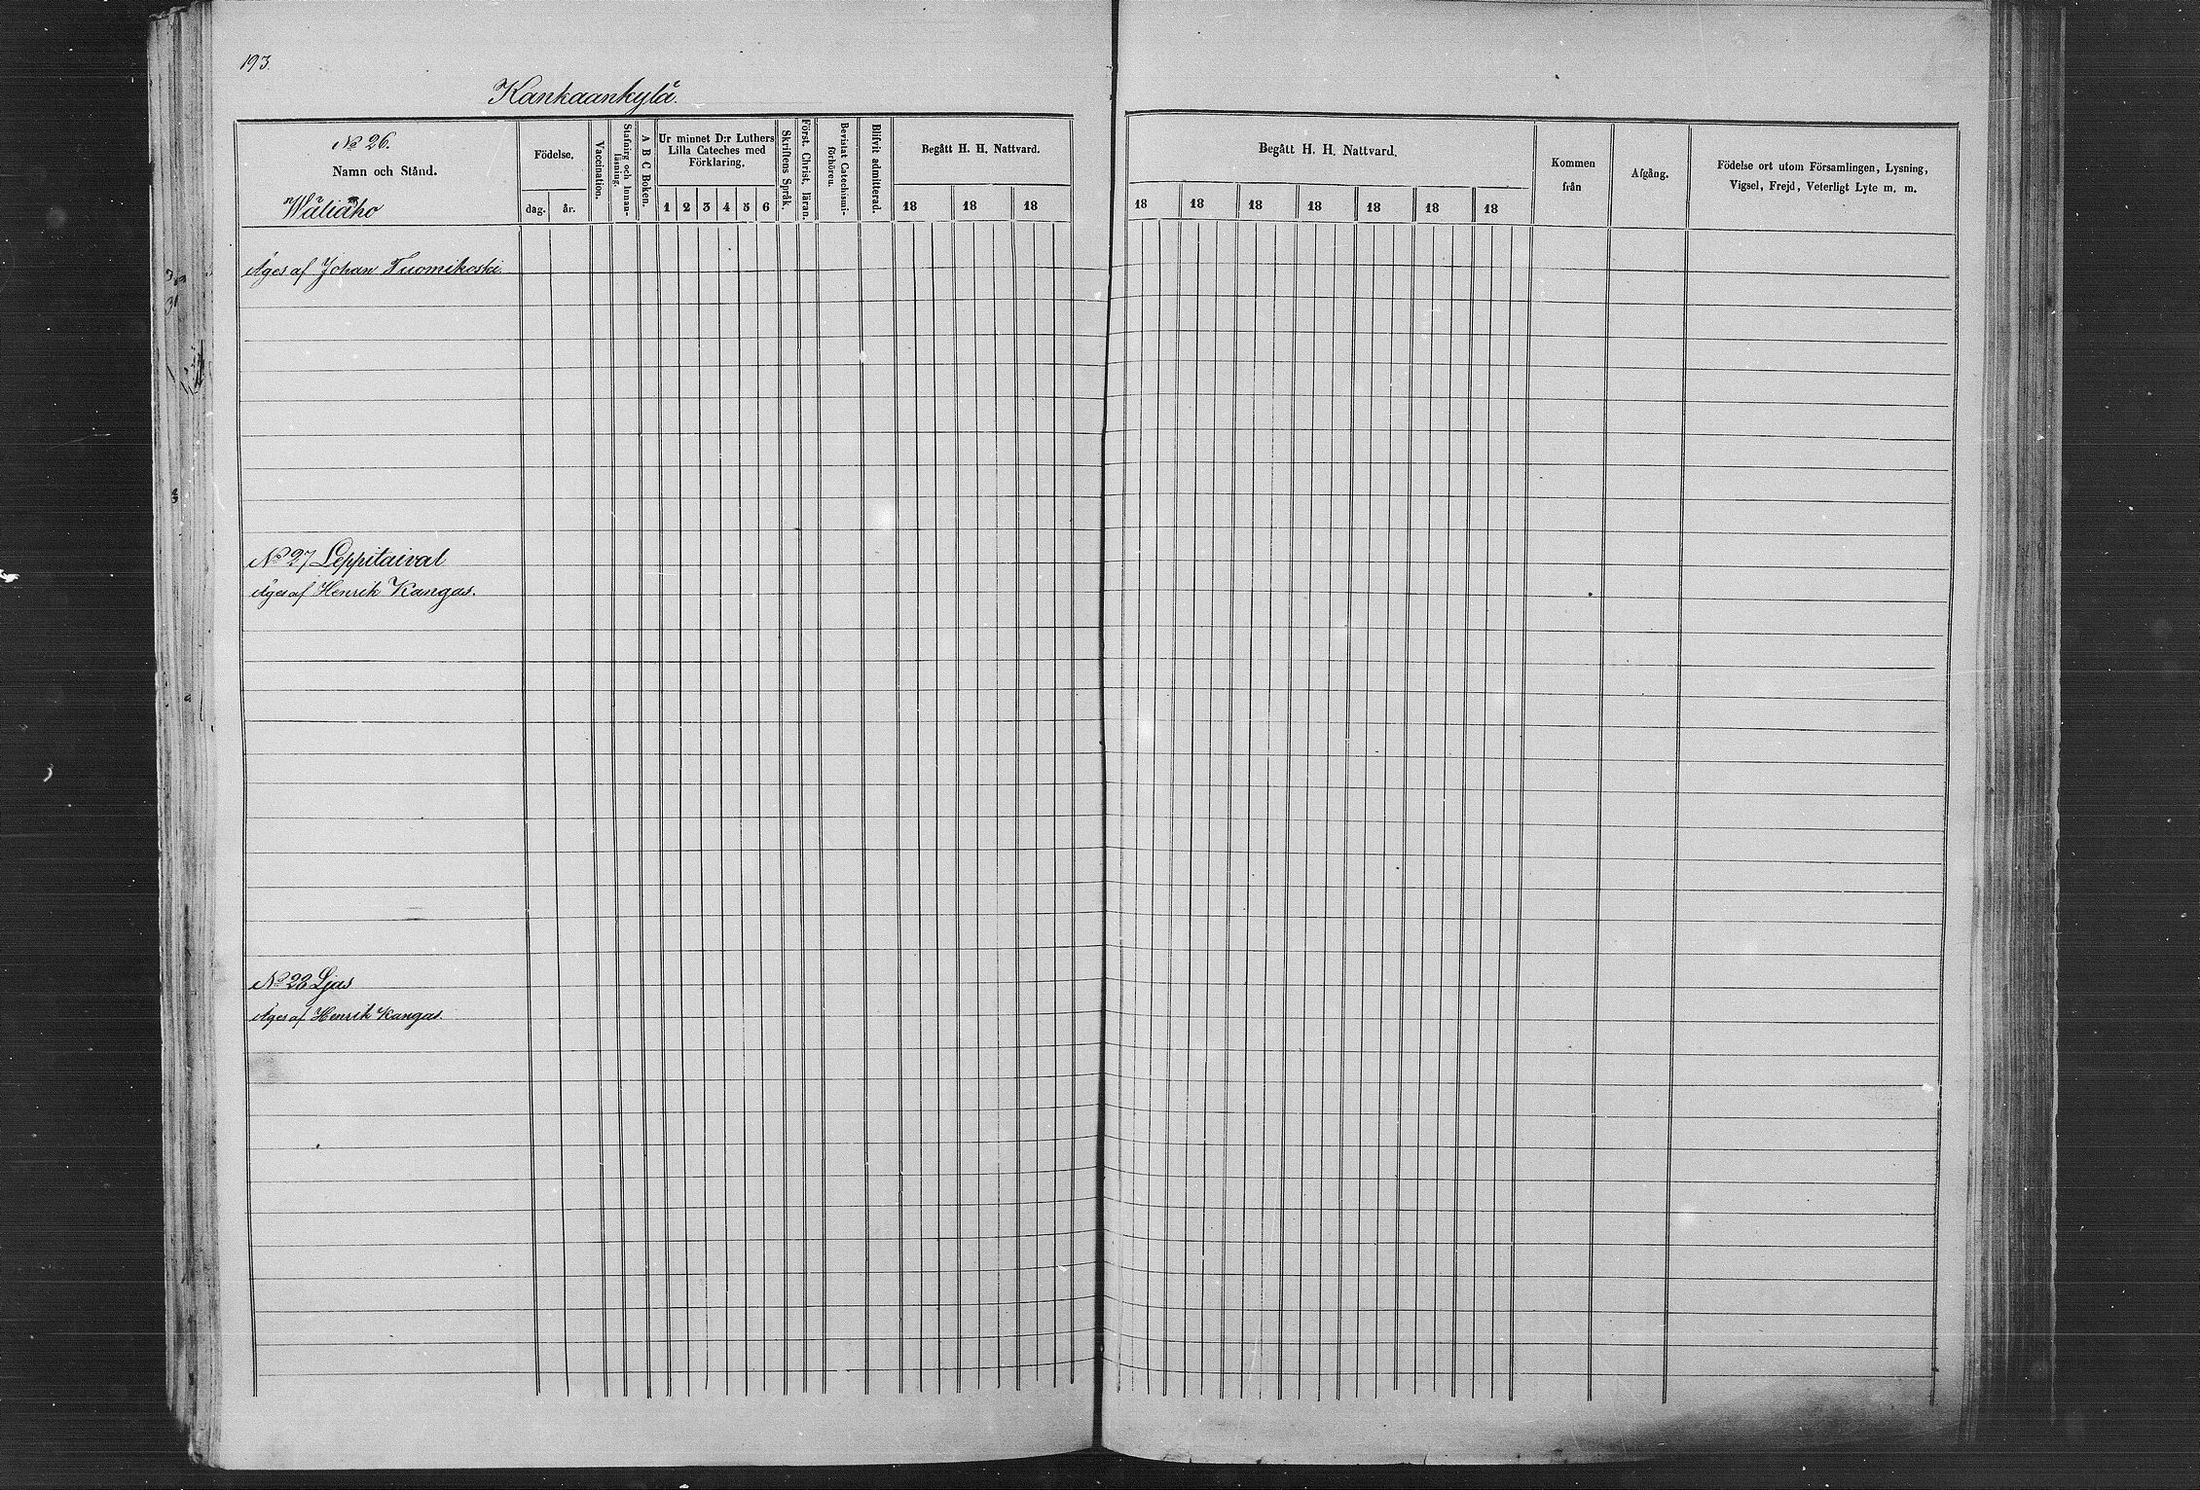 193.
Kankaankylä.
No 26.
Namn och Stånd.
Wäliaho
Födelse.
dag. år.
Vaccination.
Stafning och Innan-
läsning.
A B C Boken.
Ur minnet D:r Luthers
Lilla Cateches med
Förklaring.
1 2 3 4 5 6
Skriftens Språk.
Först. Christ. läran.
Bevistat Catechismi-
förhören.
Blifvit admitterad.
Begått H. H. Nattvard.
18 18 18
Begått H. H. Nattvard.
18 18 18 18 18 18 18
Kommen
från
Afgång.
Födelse ort utom Församlingen, Lysning,
Vigsel, Frejd, Veterligt Lyte m. m.
Äges af Johan Tuomikoski.
No 27 Leppitaival
Äges af Henrik Kangas.
No 28 Ljas
Äges af Henrik Kangas.